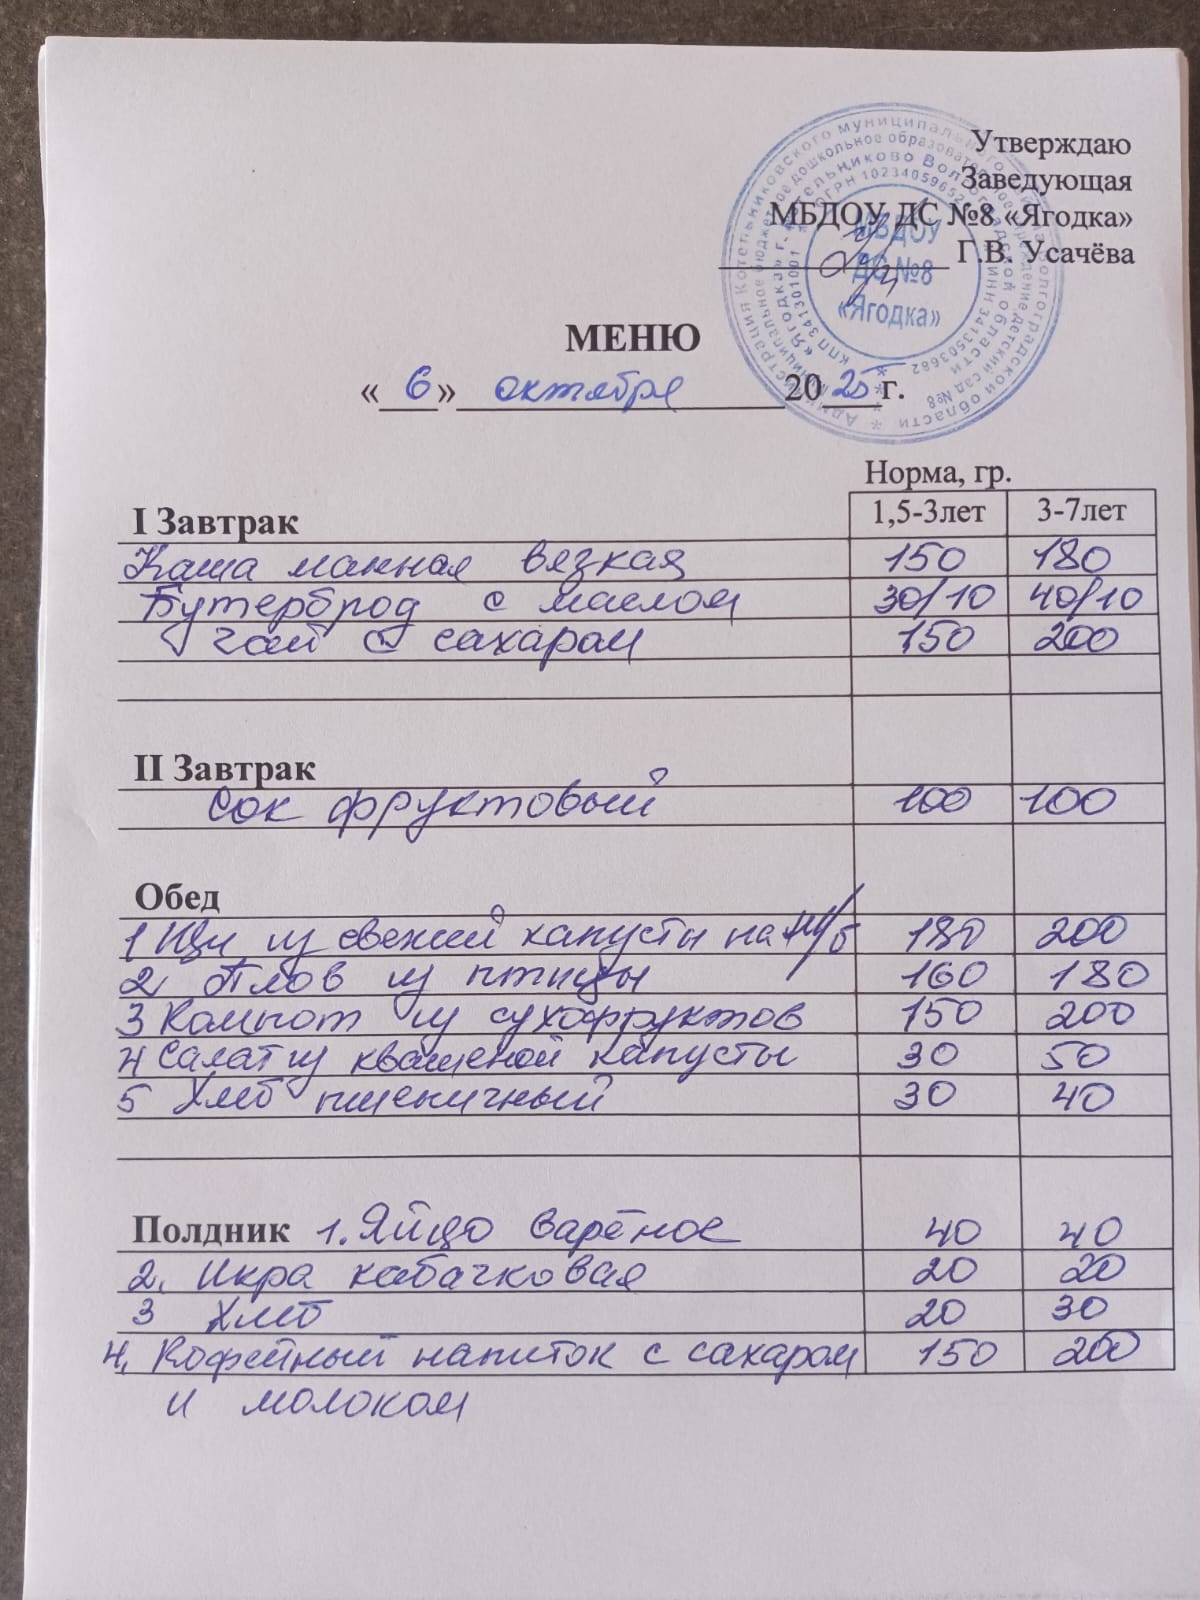 Утверждаю
Заведующая
МБДОУ ДС №8 «Ягодка»
Г.В. Усачёва
МБДОУ
ДС №8
«Ягодка»
МЕНЮ
«6» октября 2025 г.
Норма, гр.
I Завтрак 1,5-3лет 3-7лет
Каша манная вязкая 150 180
Бутерброд с маслом 30/10 40/10
Чай с сахаром 150 200
II Завтрак
Сок фруктовый 100 100
Обед
1 Щи из свежей капусты на м/б 180 200
2 Плов из птицы 160 180
3 Компот из сухофруктов 150 200
4 Салат из квашеной капусты 30 50
5 Хлеб пшеничный 30 40
Полдник 1. Яйцо варёное 40 40
2. Икра кабачковая 20 20
3 Хлеб 20 30
4. Кофейный напиток с сахаром 150 200
и молоком